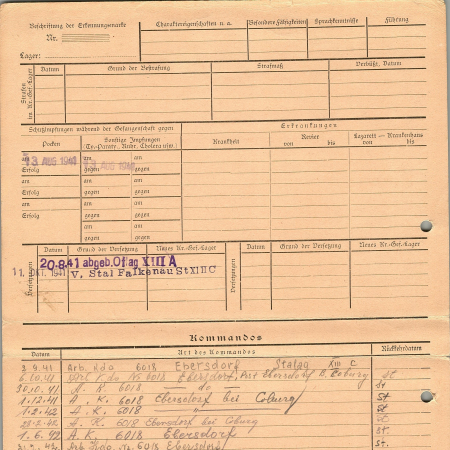 Beschriftung der Erkennungsmarke
Nr.
Lager:
Charaktereigenschaften u. a.
Besondere Fähigkeiten
Sprachkenntnisse
Führung
Strafen im Kr.-Gef.-Lager
Datum
Grund der Bestrafung
Strafmaß
Verbüßt, Datum
Schutzimpfungen während der Gefangenschaft gegen
Erkrankungen
Pocken
Sonstige Impfungen
(Ty.-Paraty., Ruhr, Cholera usw.)
Krankheit
Revier
von bis
Lazarett — Krankenhaus
von bis
am 13 AUG 1941
am 13 AUG 1941
am
Erfolg
gegen
gegen
am
am
am
Erfolg
gegen
gegen
am
am
am
Erfolg
gegen
gegen
am
am
gegen
gegen
Versetzungen
Datum
Grund der Versetzung
Neues Kr.-Gef.-Lager
Versetzungen
Datum
Grund der Versetzung
Neues Kr.-Gef.-Lager
20.8.41 abgeb. Oflag XIII A
11. OKT. 1941 V. Stal Falkenau St XIII C
Kommandos
Datum
Art des Kommandos
Rückkehrdatum
3.9.41 Arb. Kdo 6018 Ebersdorf Stalag XIII C
6.10.41 Arb Kdo Nr 6018 Ebersdorf, Post Ebersdorf B. Coburg St
30.10.41 A. K. 6018 — do — St
1.12.41 A. K. 6018 Ebersdorf bei Coburg St
1.2.42 A. K. 6018 — " — St
A. K. 6018 Ebersdorf bei Coburg St.
1.6.42 A. K. 6018 Ebersdorf St.
Arb Kdo Nr. 6018 Ebersdorf St.